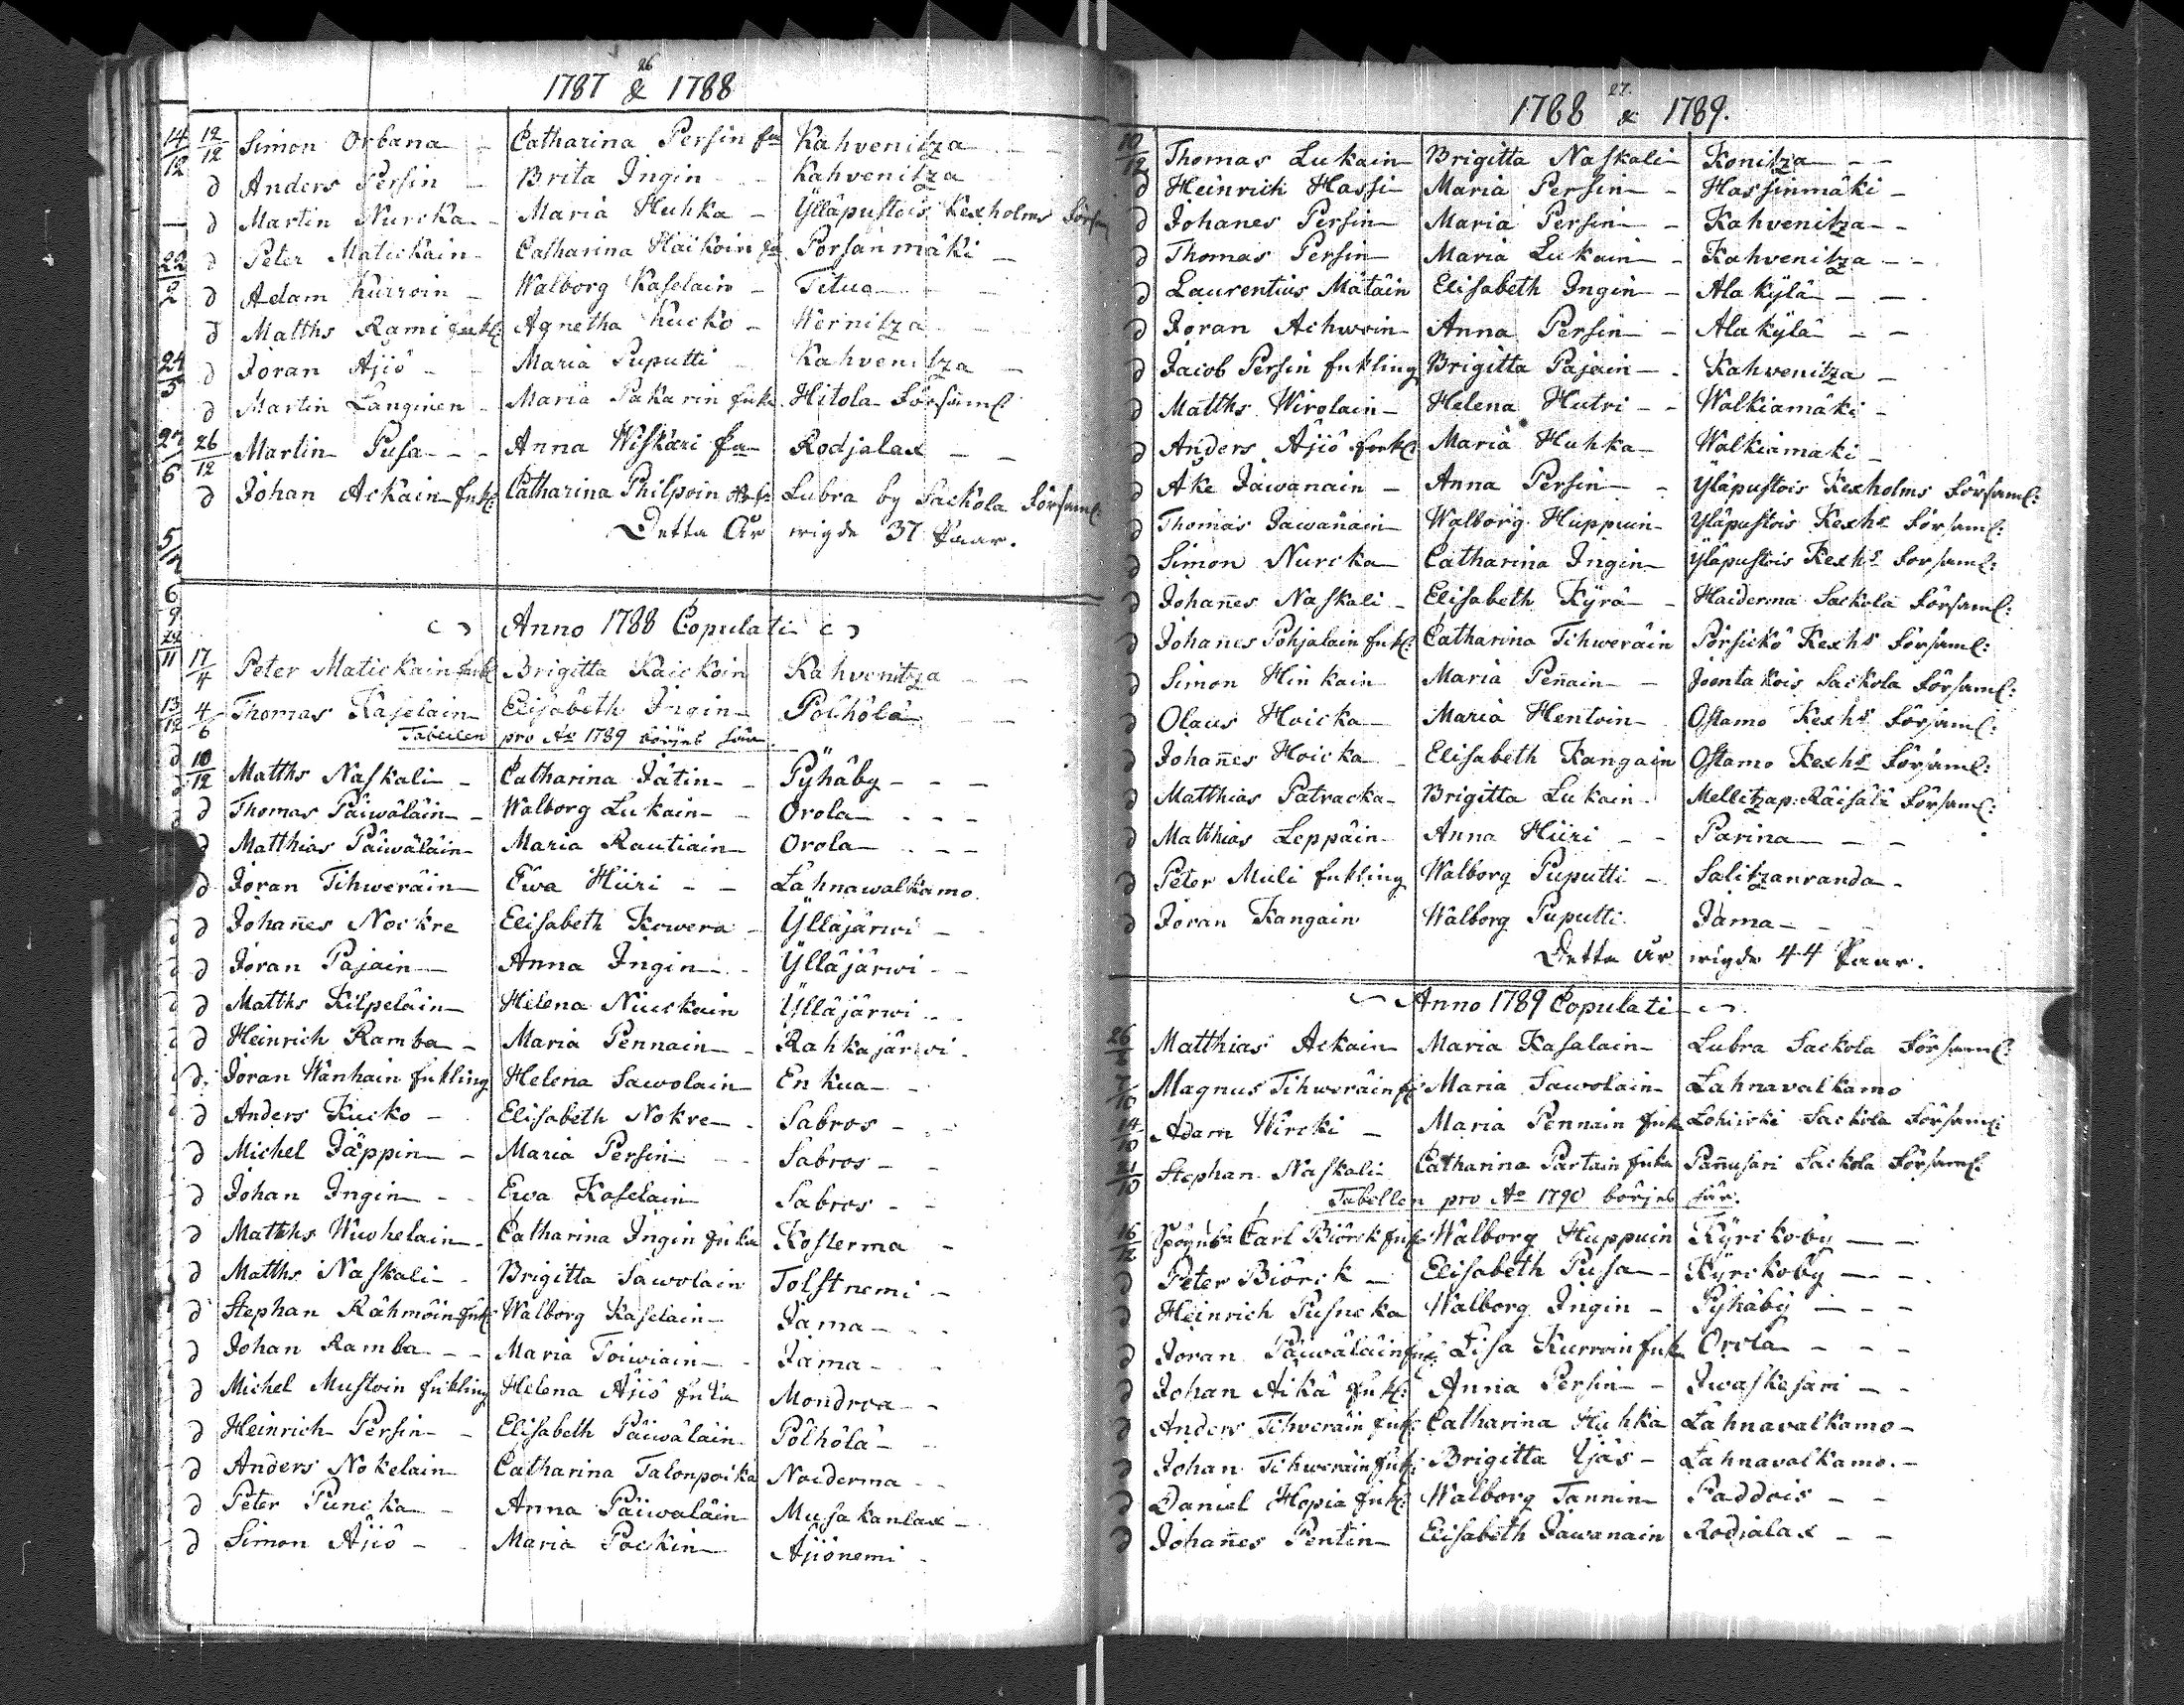 26
1787 & 1788
12/12 Simon Orbana - Catharina Persin fa Kahvenitza - -
d Anders Persin - Brita Ingin - - Kahvenitza -
d Martin Nurcka - Maria Huhka - Ylläpustois Kexholms Försam
d Peter Matickain - Catharina Haikoin Porsanmäki -
d Adam Kurroin - Walborg Kaselain - Titua - -
d Matths Rami fukl Agnetha Kucko - Wernitza - -
d Jöran Äjiö - - Maria Puputti - Kahvenitza -
d Martin Länginen - Maria Pakarin fuka Hitola Församl:
26/12 Martin Pusa - - - Anna Wiskari fa Rodjalax - -
d Johan Ackain fukl: Catharina Philpoin Lubra by Sackola Församl:
Detta År wigde 37 Paar.
Anno 1788 Copulati
17/4 Peter Matickain fukl Brigitta Kaickoin Kahvenitza - -
4/6 Thomas Kaselain Elisabeth Ingin Pölhölä -
Tabellen pro Ao 1789 börjes här.
10/12 Matths Naskali - Catharina Jätin - - Pyhäby - - -
d Thomas Päiwäläin - Walborg Lukain - Orola - - -
d Matthias Päiwäläin Maria Rautiain Orola - - -
d Jöran Tihweräin Ewa Hiiri - - Lahnawalkamo.
d Johanes Nockre Elisabeth Kowera - Ylläjärwi - -
d Jöran Pajain Anna Ingin - - Ylläjärwi - -
d Matths Kilpeläin Helena Niuckain Ylläjärwi - -
d Heinrich Ramba - Maria Pennain - Rahkajärwi -
d: Jöran Wanhain fukling Helena Sawolain Enkua - -
d Anders Kucko - Elisabeth Nokre - Sabros - - -
d Michel Jäppin - Maria Persin - - Sabros - -
d Johan Ingin - - Ewa Kaselain Sabros - -
d Matths Wiwhelain - Catharina Ingin fuka Kosterma -
d Matths Naskali - Brigitta Sawolain Tolstnemi -
d Stephan Kähmöin fukl Walborg Kaselain Jama - -
d Johan Ramba - - Maria Toiwiain - Jama - -
d Michel Mustoin fukling Helena Äjiö fuka Mondroa - -
d Heinrich Persin - Elisabeth Päiwäläin Pölhölä - -
d Anders Nokelain Catharina Talonpoika Noiderma - -
d Peter Punicka - Anna Päiwäläin Musakanlax -
d Simon Äjiö - Maria Pockin Äjiönemi -
27.
1788 & 1789.
10/12 Thomas Lukain Brigitta Naskali Konitza - -
d Heinrich Hassi Maria Persin - Hassinmäki -
d Johanes Persin Maria Persin - Kahvenitza - -
d Thomas Persin Maria Lukain - Kahvenitza - -
d Laurentius Mätäin Elisabeth Ingin - Alakylä - -
d Jöran Achwoin Anna Persin - Alakylä - -
d Jacob Persin fukling Brigitta Pajain - Kahvenitza -
d Matths Wirolain Helena Hutri - - Walkiamäki -
d Anders Äjiö fukl: Maria Huhka Walkiamaki -
d Ake Jäwanain - Anna Persin - Yläpustois Kexholms Församl:
d Thomas Jawanain Walborg Huppuin Yläpustois Kexhs Församl:
d Simon Nurcka Catharina Ingin Yläpustois Kexhs Församl:
d Johanes Naskali - Elisabeth Kyrä Haiderma Sackola Församl:
d Johanes Pohjalain fukl: Catharina Tihweräin Pörsickö Kexhs Församl:
d Simon Hinkain Maria Penain - Joentakois Sackola Församl:
d Olaus Hoicka Maria Hentoin Ostamo Kexhs Församl:
d Johanes Hoicka - Elisabeth Kangain Ostamo Kexhs Församl:
d Matthias Patracka - Brigitta Lukain Mellitzap: Räisälä Församl:
d Matthias Leppäin Anna Hiiri - - Parina - -
d Peter Muli fukling Walborg Puputti - Salitzanranda -
d Jöran Kangain Walborg Puputti Jama - -
Detta år wigde 44 Paar.
Anno 1789 Copulati
Matthias Ackain Maria Kasalain Lubra Sackola Församl:
Magnus Tihweräin Maria Sawolain Lahnavalkamo
Adam Wircki - Maria Pennain fuka Lohiioki Sackola Församl:
Stephan Naskali Catharina Partain fuka Panusari Sackola Församl:
Tabellen pro Ao 1790 börjes här.
Carl Biörck fukl Walborg Huppuin Kyrckoby - -
d Peter Biörck - Elisabeth Pusa - Kyrckoby - -
d Heinrich Pusneka Walborg Ingin - Pyhäby - - -
d Jöran Päiwäläin fukl: Lisa Kurroin fuk Orola - - -
d Johan Aikä fukl: Anna Persin - Iwaskesari - -
d Anders Tihweräin fukl: Catharina Huhka Lahnavalkamo -
d Johan Tihweräin fukl: Brigitta Yjäs - Lahnavalkamo. -
d Daniel Hopia fukl: Walborg Tannin Paddois - -
d Johanes Pentin Elisabeth Jäwanain Rodjalax - -